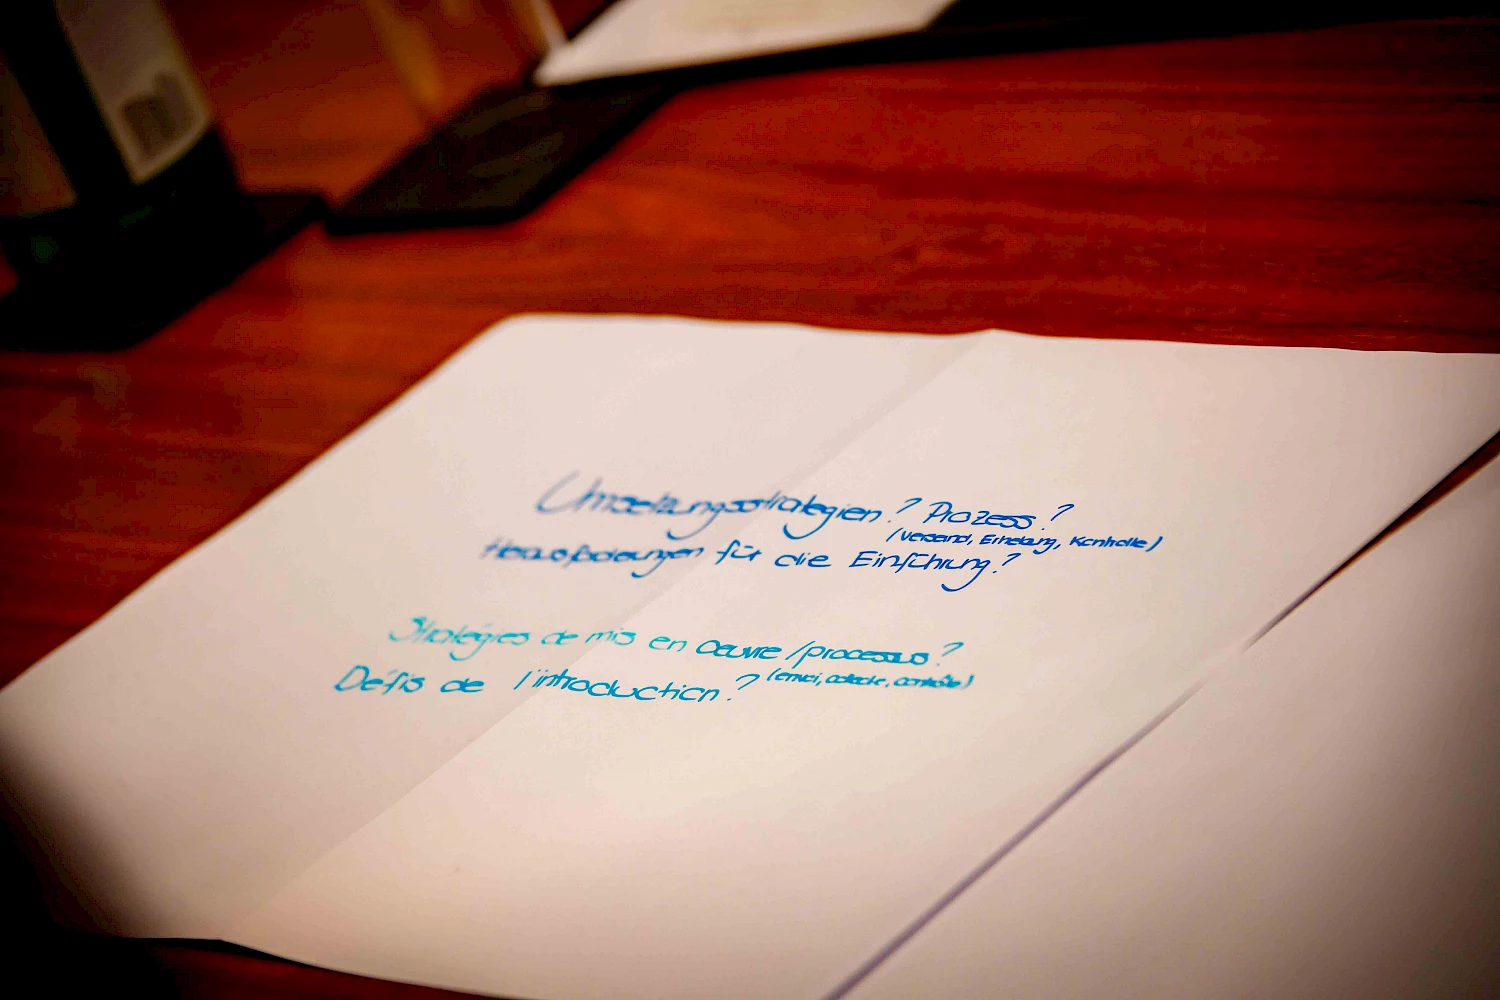 Umsetzungsstrategien? Prozess?
(Versand, Erhebung, Kontrolle)
Herausforderungen für die Einführung?
Stratégies de mis en oeuvre / processus?
(envoi, collecte, contrôle)
Défis de l'introduction?